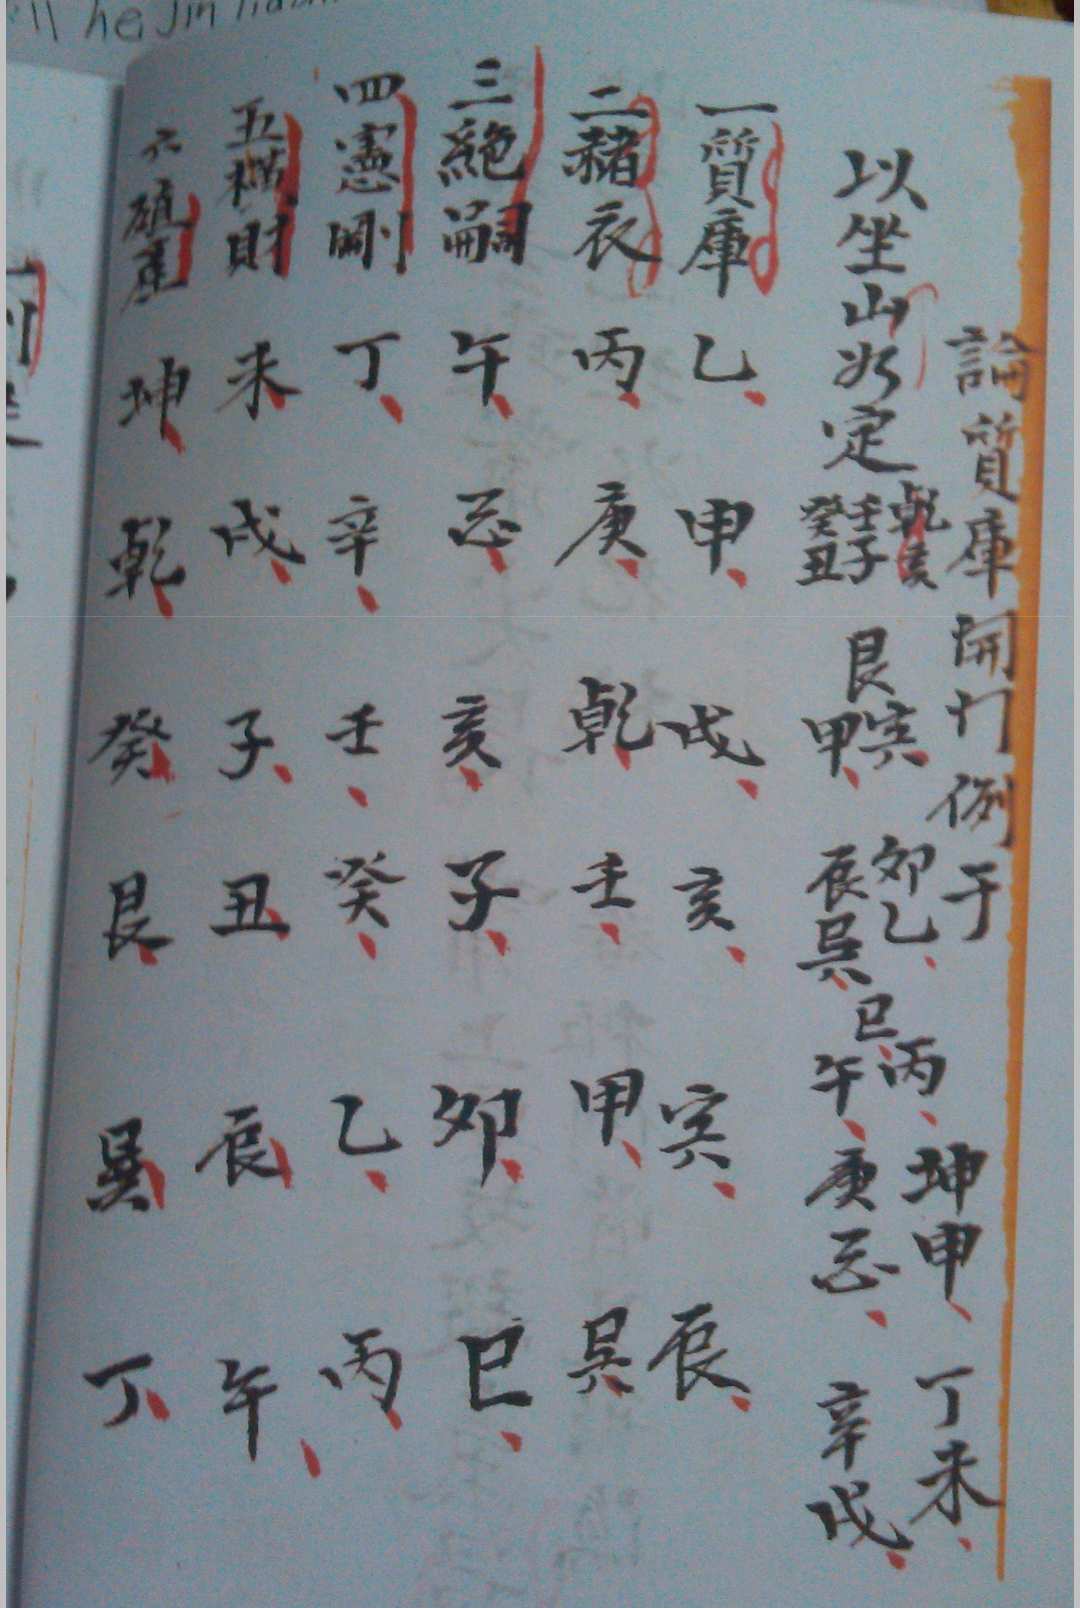 論質庫開門例于
以坐山为定 乾亥壬子癸丑 艮寅甲 卯乙辰巽 巳丙午 坤申庚酉 丁未辛戌
一質庫 乙 申 戌 亥 寅 辰
二赭衣 丙 庚 乾 壬 甲 巽
三絕嗣 午 酉 亥 子 卯 巳
四憲剛 丁 辛 壬 癸 乙 丙
五橫財 未 戌 子 丑 辰 午
六 坤 乾 癸 艮 巽 丁